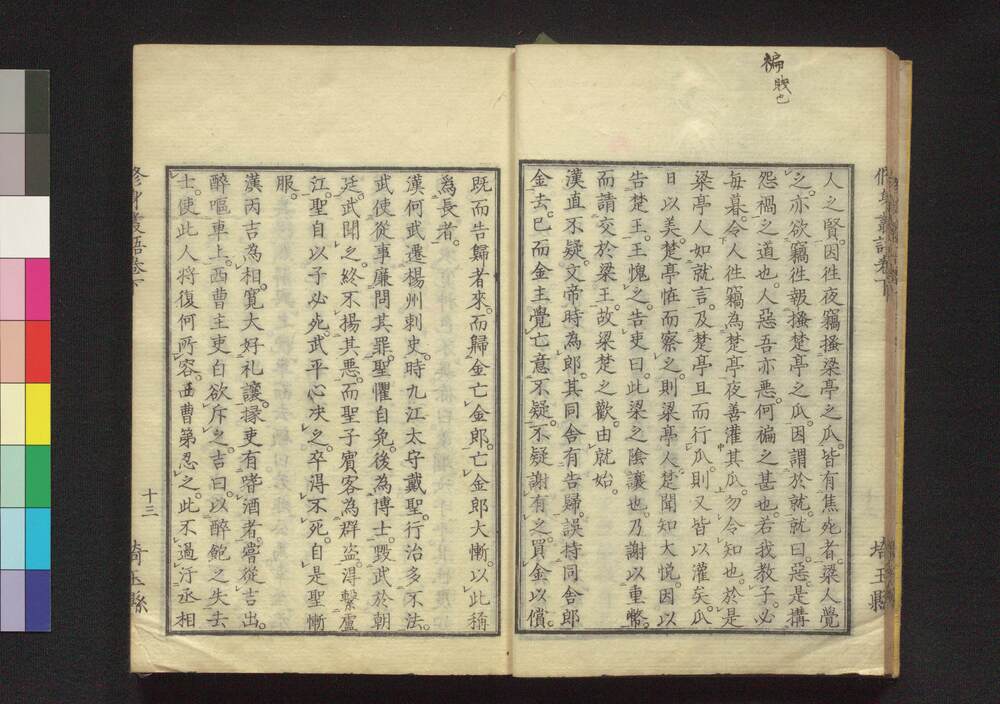 褊
賎也
人之賢。因徃夜竊搔梁亭之瓜。皆有焦死者。梁人覺
之。亦欲竊徃報搔楚亭之瓜。因謂於就。就曰。惡。是構
怨禍之道也。人惡吾亦惡。何褊之甚也。若我教子。必
毎暮。令人徃竊為楚亭夜善灌其瓜。勿令知也。於是
梁亭人如就言。及楚亭旦而行瓜。則又皆以灌矣。瓜
日以美。楚亭恠而察之。則梁亭人。楚聞知大悦。因以
告楚王。王愧之。告吏曰。此梁之陰讓也。乃謝以重幣。
而請交於梁王。故梁楚之歡。由就始。
漢直不疑。文帝時為郎。其同舎有告歸。誤持同舎郎
金去。已而金主覺亡意不疑。不疑謝有之。買金以償。
既而告歸者來。而歸金亡金郎。亡金郎大慚。以此稱
為長者。
漢何武遷楊州刺史。時九江太守戴聖。行治多不法。
武使從事廉問其罪。聖懼自免。後為博士。毀武於朝
廷。武聞之。終不揚其惡。而聖子賓客為群盗。得繫廬
江。聖自以子必死。武平心决之。卒得不死。自是聖慚
服。
漢丙吉為相。寛大好礼讓。掾吏有嗜酒者。嘗從吉出。
醉嘔車上。西曹主吏白欲斥之。吉曰。以醉飽之失去
士。使此人将復何所容。西曹第忍之。此不過汙丞相
十三
埼玉縣
埼玉縣